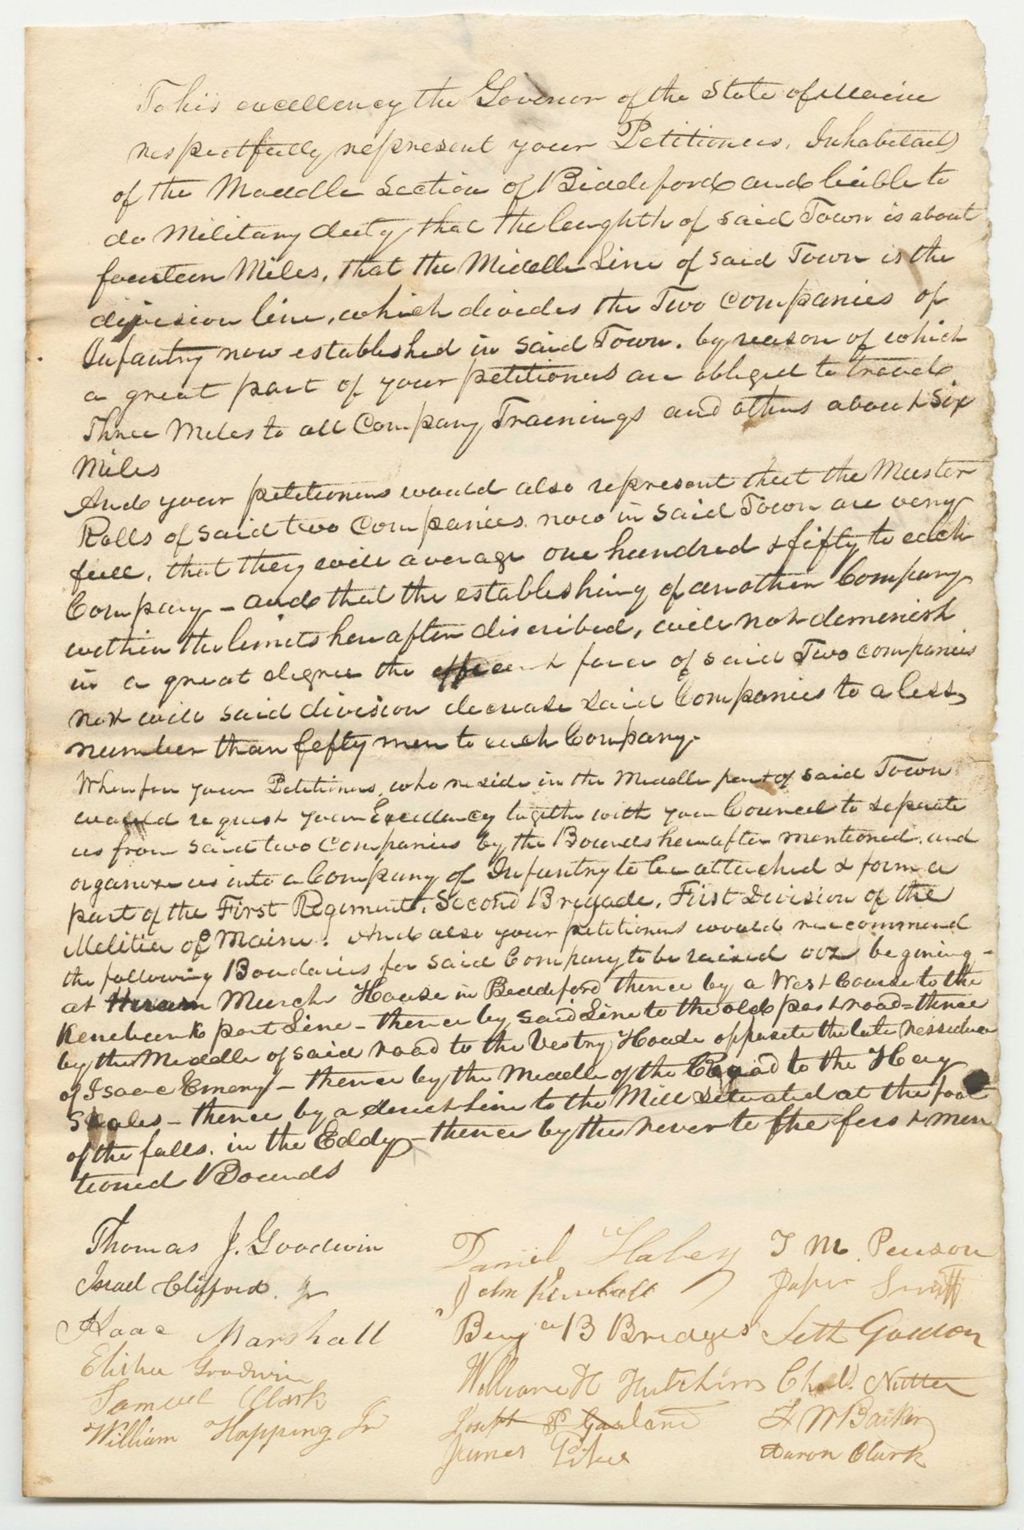 To his excellency the Govenor of the State of Maine
respectfully represent your Petitioners, Inhabitants
of the Maddle Section of Biddeford and lieble to
do Military duty, that the lenghth of said Town is about
fourteen Miles, that the Middle Line of said Town is the
division line, which divides the Two Companies of
Infantry now established in said Town. by reason of which
a great part of your petitioners are obliged to travel
Three Miles to all Company Trainings and others about Six
Miles
And your petitioners would also represent that the Muster
Rolls of said two Companies now in said Town are very
full, that they will average one hundred & fifty to each
Company - and that the establishing of another Company
within the limits hereafter discribed, will not deminish
in a great degree the efficent force of said Two companies
nor will said division decrease said Companies to a less
number than fifty men to each Company.
Wherefore your Petitioners, who reside in the Middle part of said Town
would request your Excellency togither with your Council to seperate
us from said two Companies by the Bounds hereafter mentioned. and
organize us into a Company of Infantry to be attached & form a
part of the First Regiment, Second Brigade, First Division of the
Melitia of Maine. And also your petitioners would reccommend
the following Boundaries for said Company to be raised viz begining -
at Hiram Murch House in Biddeford thence by a West Course to the
Kenebunk port Line - thence by said Line to the old post road = thence
by the Middle of said road to the Vestry House opposite the late ressidence
of Isaac Emery - thence by the Middle of the Road to the Hay
Scales - thence by a direct Line to the Mill situated at the foot
of the falls. in the Eddy - thence by the river to the first men
tioned Bounds
Thomas J. Goodwin Daniel Haley T M. Penson
Israel Clifford. Jr John Kimball Smith
Isaac Marshall Benj a B Bridges Seth Gordon
Elisha Goodwin William H Hutchins Cha V. Nutter
Samuel Clark Joseph S Garland F W Barker
William Happing Jr James Pike Aaron Clark